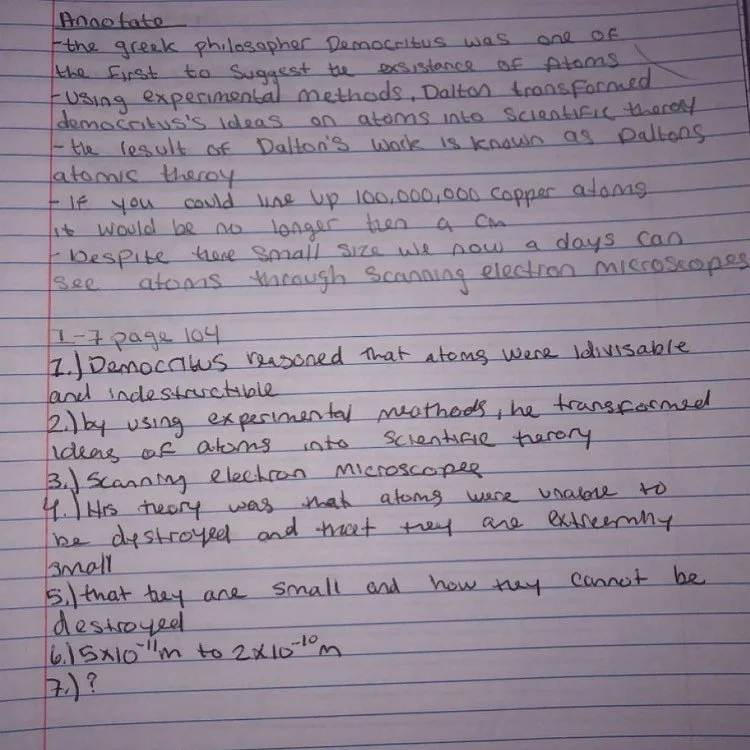 Annotate
-the greek philosopher Democritus was one of
the first to suggest the exsistance of Atoms
-Using experimental methods, Dalton transformed
democritus's ideas on atoms into scientific theroy
-the result of Dalton's work is known as Daltons
atomic theroy
-If you could line up 100,000,000 copper atoms
it would be no longer then a cm
-Despite there small size we now a days can
see atoms through scanning electron microscopes
1-7 page 104
1.) Democritus reasoned that atoms were idivisable
and indestructible
2.) by using experimental meathods, he transformed
ideas of atoms into scientific therory
3.) Scanning electron microscopes
4.) His theory was that atoms were unable to
be dystroyed and that they are extreemhy
small
5.) that they are small and how they cannot be
destroyed
6.) 5x10⁻¹¹m to 2x10⁻¹⁰m
7.) ?